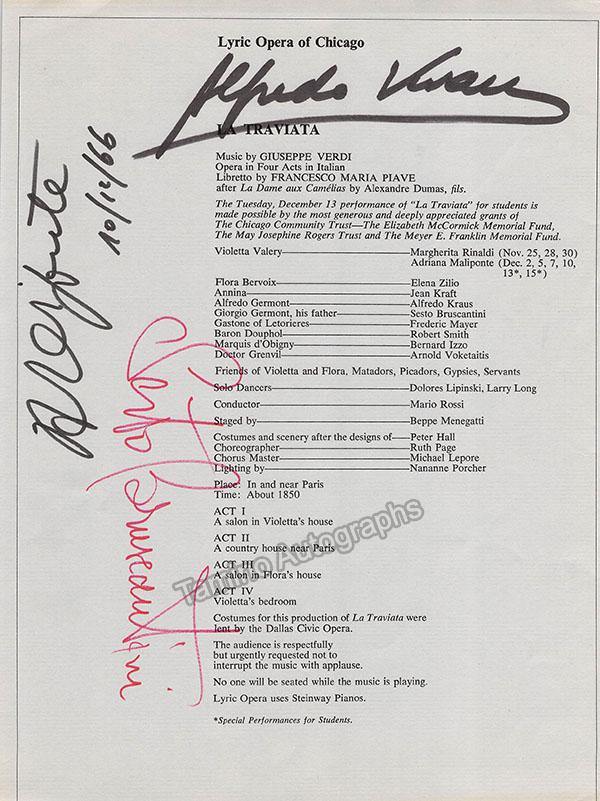 Lyric Opera of Chicago
Alfredo Kraus
LA TRAVIATA
Music by GIUSEPPE VERDI
Opera in Four Acts in Italian
Libretto by FRANCESCO MARIA PIAVE
after La Dame aux Camélias by Alexandre Dumas, fils.
The Tuesday, December 13 performance of "La Traviata" for students is
made possible by the most generous and deeply appreciated grants of
The Chicago Community Trust—The Elizabeth McCormick Memorial Fund,
The May Josephine Rogers Trust and The Meyer E. Franklin Memorial Fund.
Violetta Valery—Margherita Rinaldi (Nov. 25, 28, 30)
Adriana Maliponte (Dec. 2, 5, 7, 10,
13*, 15*)
Flora Bervoix—Elena Zilio
Annina—Jean Kraft
Alfredo Germont—Alfredo Kraus
Giorgio Germont, his father—Sesto Bruscantini
Gastone of Letorieres—Frederic Mayer
Baron Douphol—Robert Smith
Marquis d'Obigny—Bernard Izzo
Doctor Grenvil—Arnold Voketaitis
Friends of Violetta and Flora, Matadors, Picadors, Gypsies, Servants
Solo Dancers—Dolores Lipinski, Larry Long
Conductor—Mario Rossi
Staged by—Beppe Menegatti
Costumes and scenery after the designs of—Peter Hall
Choreographer—Ruth Page
Chorus Master—Michael Lepore
Lighting by—Nananne Porcher
Place: In and near Paris
Time: About 1850
ACT I
A salon in Violetta's house
ACT II
A country house near Paris
ACT III
A salon in Flora's house
ACT IV
Violetta's bedroom
Costumes for this production of La Traviata were
lent by the Dallas Civic Opera.
The audience is respectfully
but urgently requested not to
interrupt the music with applause.
No one will be seated while the music is playing.
Lyric Opera uses Steinway Pianos.
*Special Performances for Students.
10/12/66
Sesto Bruscantini
Tamino Autographs